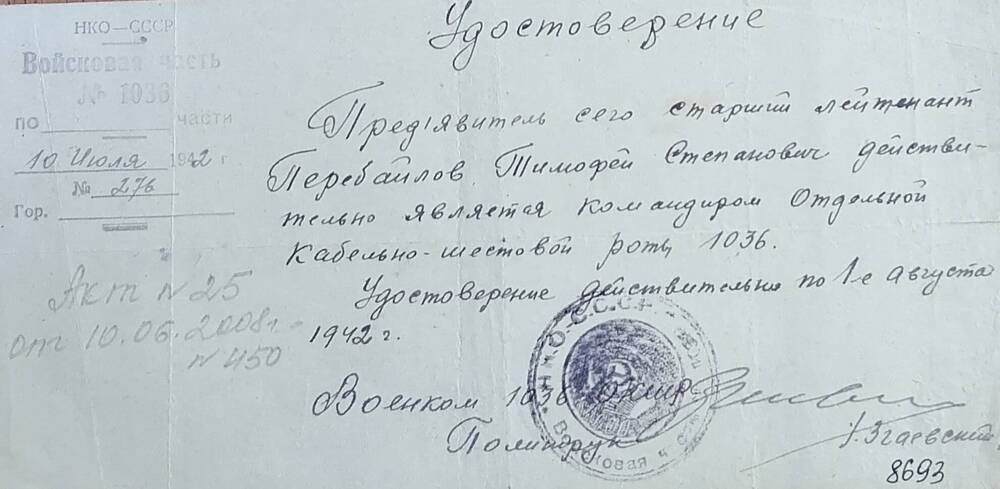 НКО—СССР
Войсковая часть
№ 1036
по части
10 Июля 1942 г
№ 276
Гор.
Акт N 25
от 10.06.2008г.
N 450
Удостоверение
Пред'явитель сего старший лейтенант
Перебайлов Тимофей Степанович действи-
тельно является командиром Отдельной
Кабельно-шестовой роты 1036.
Удостоверение действительно по 1-е августа
1942 г.
Н.К.О.-С.С.С.Р.
Войсковая ч
Военком 1036 ОКШР
Политрук
8693